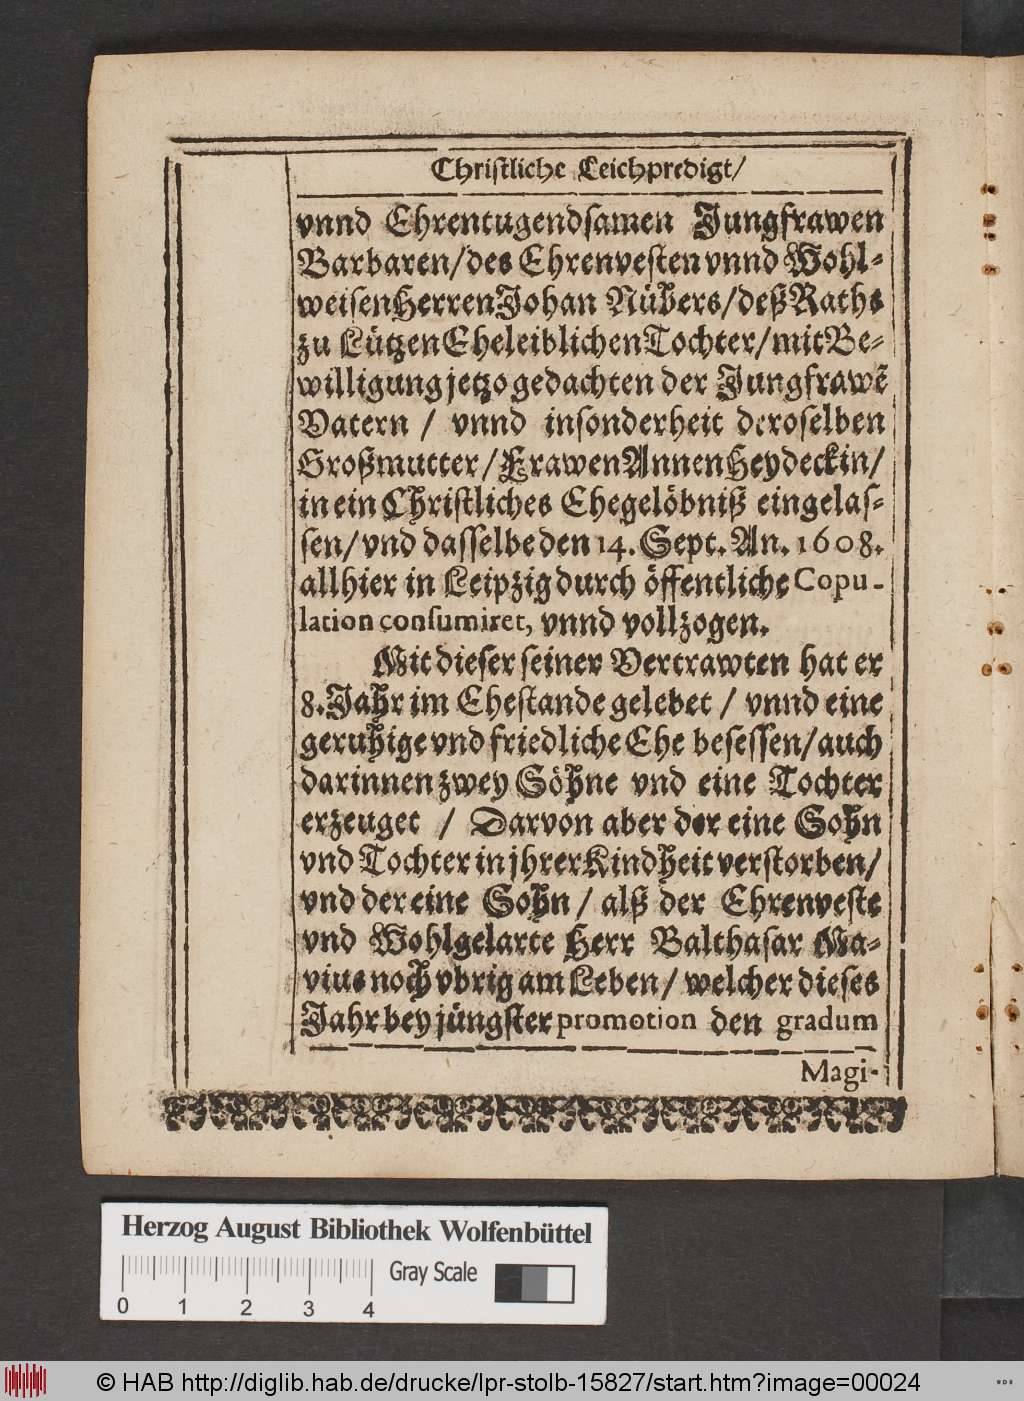 Christliche Leichpredigt/
vnnd Ehrentugendsamen Jungfrawen
Barbaren/des Ehrenvesten vnnd Wohl-
weisen Herren Johan Nübers/deß Raths
zu Lützen Eheleiblichen Tochter/mit Be-
willigung jetzo gedachten der Jungfrawẽ
Vatern / vnnd insonderheit deroselben
Großmutter/Frawen Annen Heydeckin/
in ein Christliches Ehegelöbniß eingelas-
sen/vnd dasselbe den 14. Sept. An. 1608.
allhier in Leipzig durch öffentliche Copu-
lation consumiret, vnnd vollzogen.
Mit dieser seiner Vertrawten hat er
8. Jahr im Ehestande gelebet / vnnd eine
geruhige vnd friedliche Ehe besessen/auch
darinnen zwey Söhne vnd eine Tochter
erzeuget / Darvon aber der eine Sohn
vnd Tochter in jhrer Kindheit verstorben/
vnd der eine Sohn / alß der Ehrenveste
vnd Wohlgelarte Herr Balthasar Ma-
vius noch vbrig am Leben/ welcher dieses
Jahr bey jüngster promotion den gradum
Magi-
Herzog August Bibliothek Wolfenbüttel
Gray Scale
0 1 2 3 4
© HAB http://diglib.hab.de/drucke/lpr-stolb-15827/start.htm?image=00024